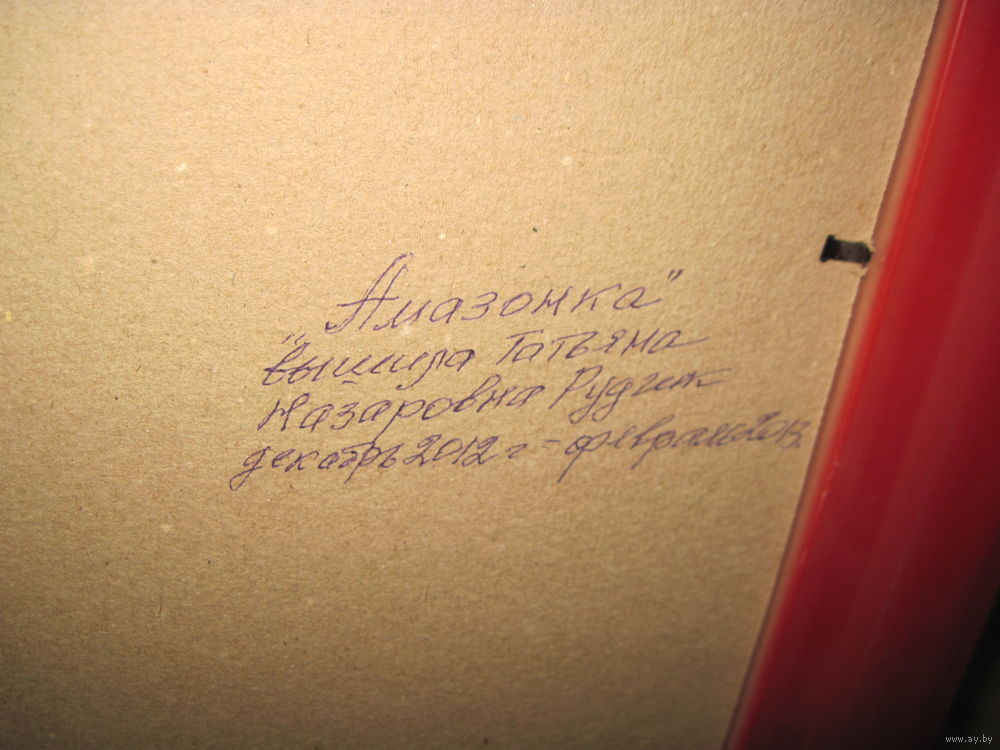 „Амазонка"
вышила Татьяна
Назаровна Рудик
декабрь 2012 г - февраль 2013
www.ay.by